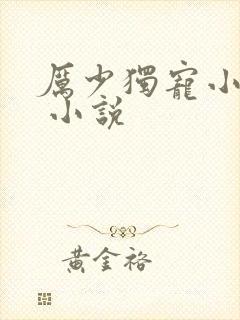 厲少獨寵小
小說
黃金裕